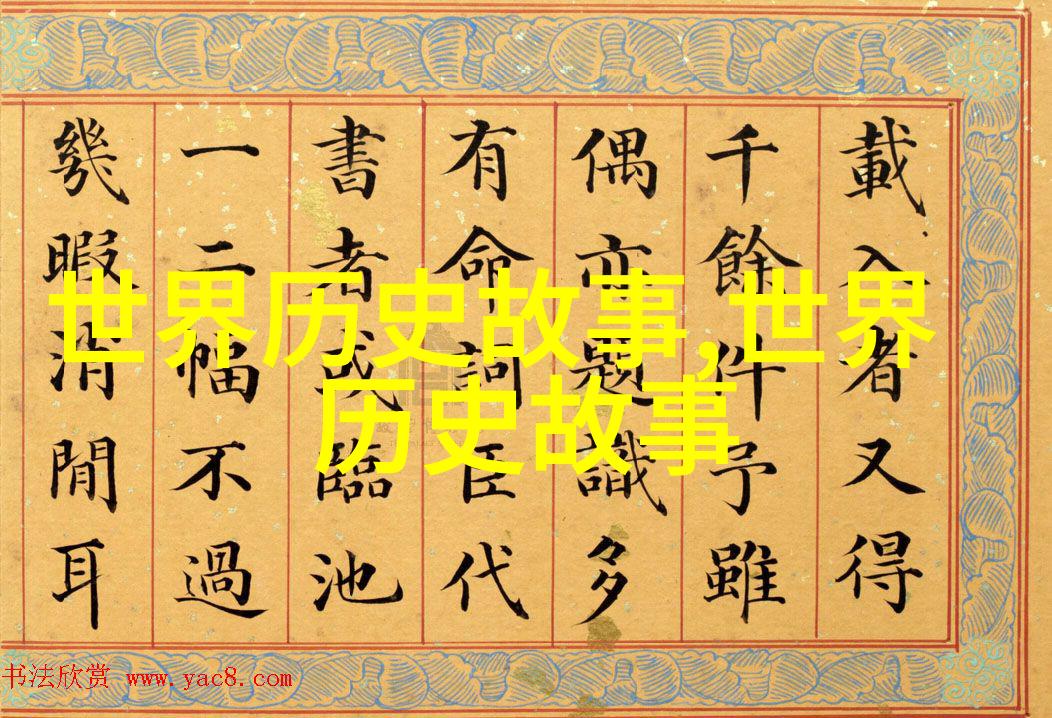 載入者又得
千餘件予雖
偶亦題識多
有命詞臣代
書者或臨池
一二幅不過
幾暇消閒耳
世界历史故事,世界
历史故事
书法欣赏 www.yac8.com